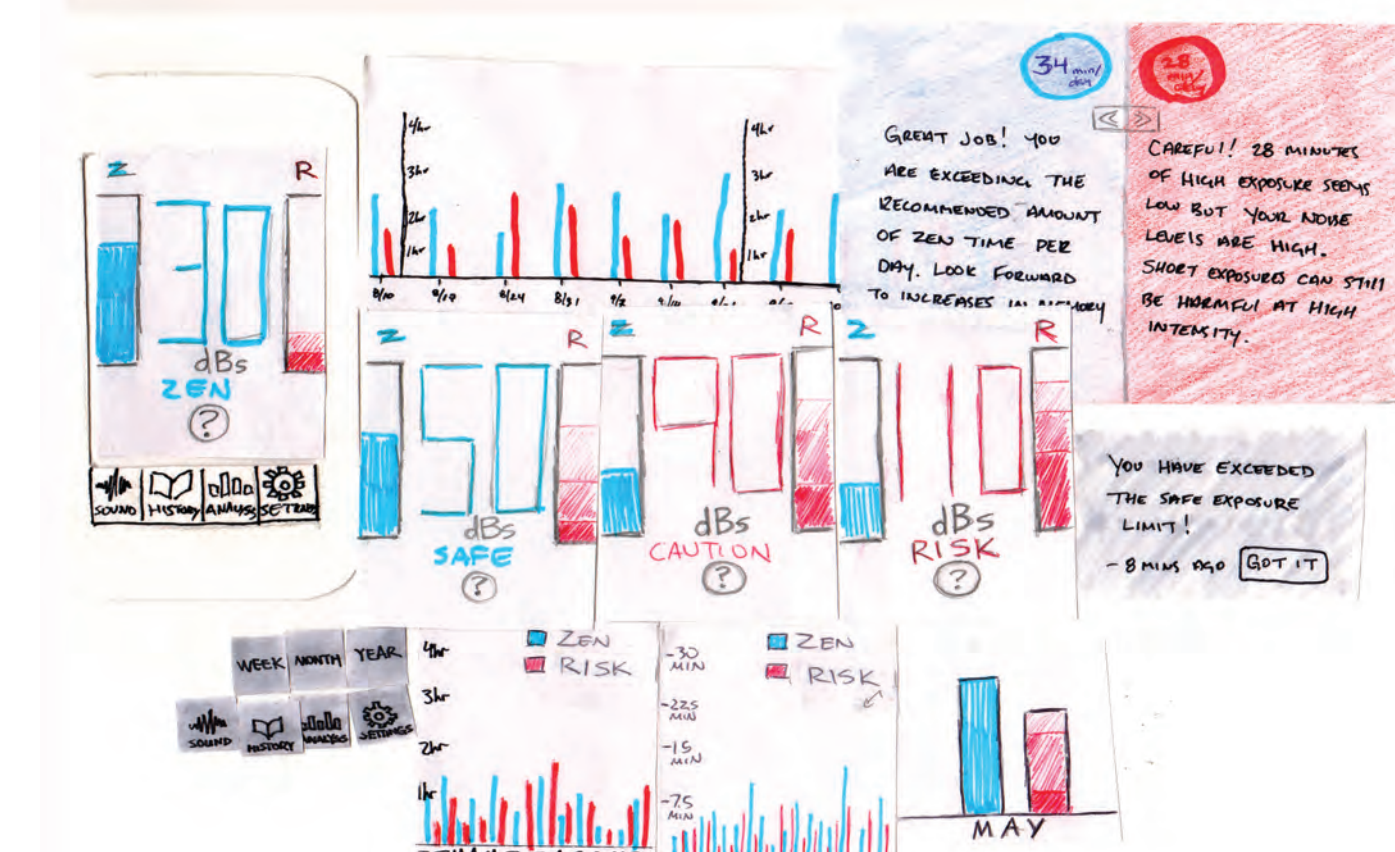 Z
R
30
dBs
ZEN
?
SOUND
HISTORY
ANALYSIS
SETTINGS
4hr
3hr
2hr
1hr
4hr
3hr
2hr
1hr
8/10
8/31
9/2
34 min/
day
GREAT JOB! YOU
ARE EXCEEDING THE
RECOMMENDED AMOUNT
OF ZEN TIME PER
DAY. LOOK FORWARD
TO INCREASES IN MEMORY
28
min/
day
CAREFUL! 28 MINUTES
OF HIGH EXPOSURE SEEMS
LOW BUT YOUR NOISE
LEVELS ARE HIGH.
SHORT EXPOSURES CAN STILL
BE HARMFUL AT HIGH
INTENSITY.
Z
R
50
dBs
SAFE
?
Z
R
90
dBs
CAUTION
?
Z
R
110
dBs
RISK
?
YOU HAVE EXCEEDED
THE SAFE EXPOSURE
LIMIT!
- 8 MINS AGO GOT IT
WEEK MONTH YEAR
SOUND HISTORY ANALYSIS SETTINGS
4hr
3hr
2hr
1hr
ZEN
RISK
-30
MIN
-22.5
MIN
-15
MIN
-7.5
MIN
ZEN
RISK
MAY